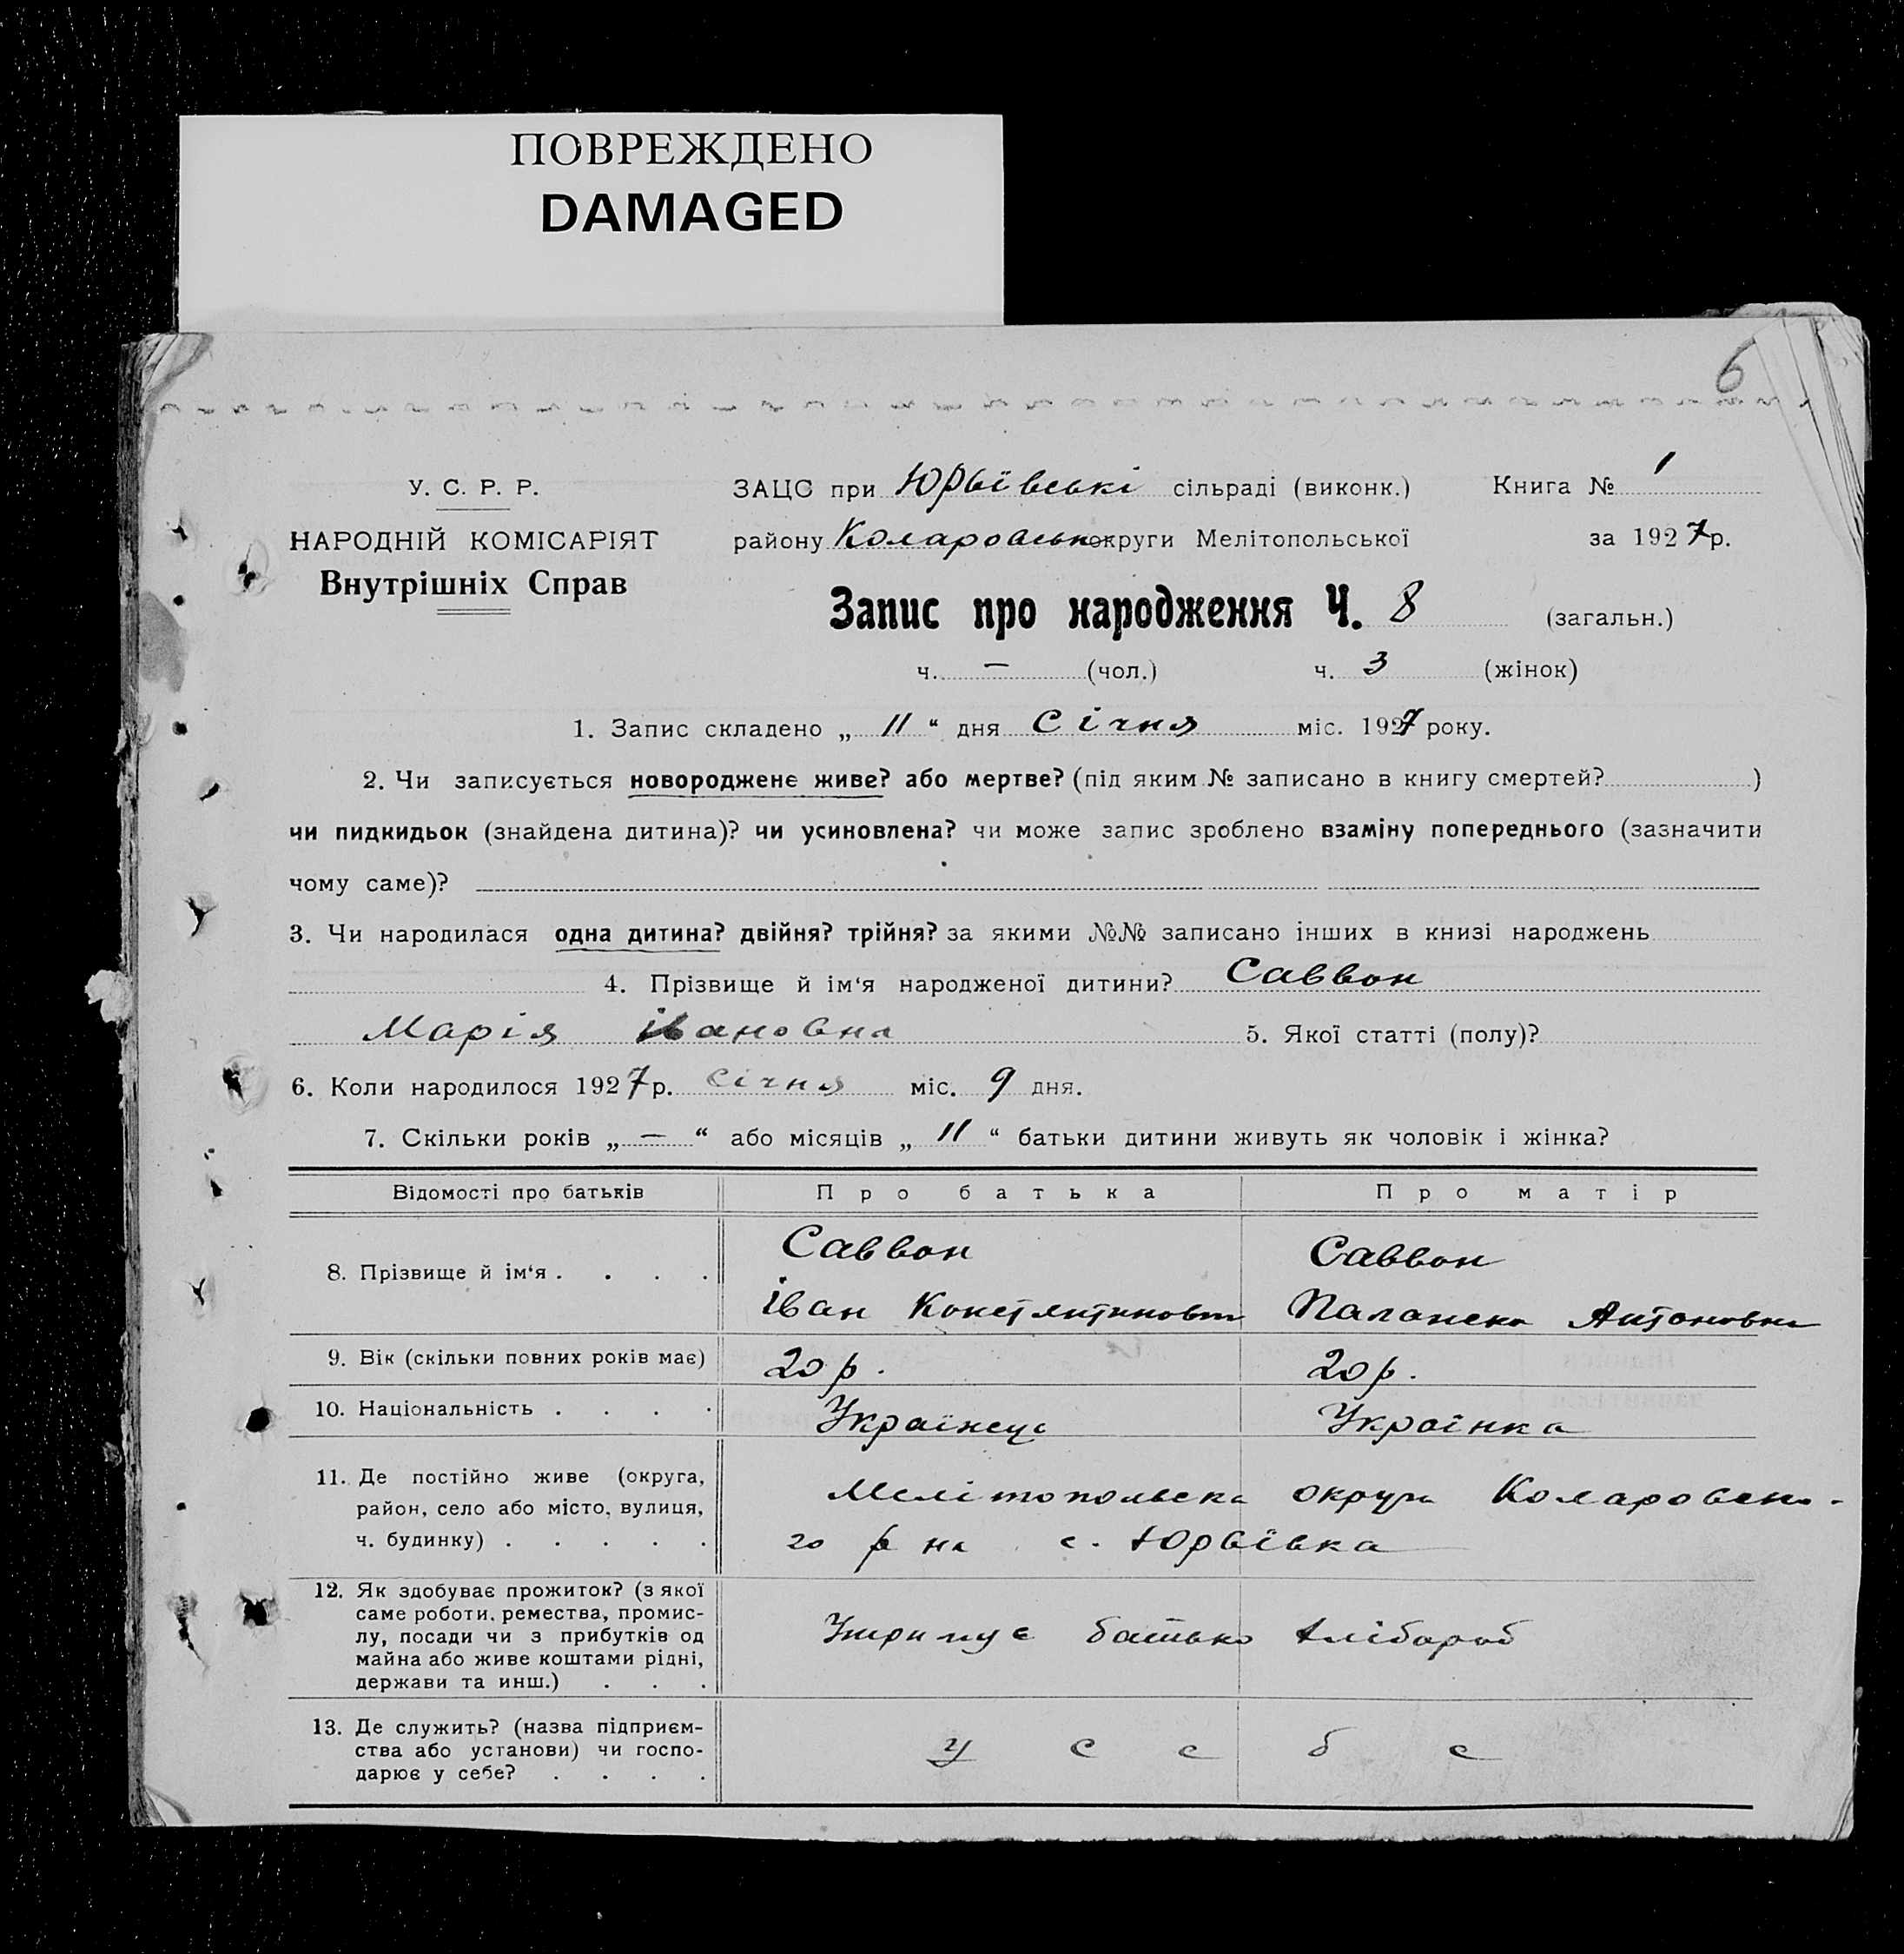 ПОВРЕЖДЕНО
DAMAGED
6
У. С. Р. Р.
НАРОДНІЙ КОМІСАРІЯТ
Внутрішніх Справ
ЗАЦС при Юрьївські сільраді (виконк.) Книга № 1
району Коларовсько округи Мелітопольської за 1927 р.
Запис про народження Ч. 8 (загальн.)
ч. — (чол.) ч. 3 (жінок)
1. Запис складено „ 11 “ дня Січня міс. 1927 року.
2. Чи записується новороджене живе? або мертве? (під яким № записано в книгу смертей? )
чи пидкидьок (знайдена дитина)? чи усиновлена? чи може запис зроблено взаміну попереднього (зазначити
чому саме)?
3. Чи народилася одна дитина? двійня? трійня? за якими №№ записано інших в книзі народжень
4. Прізвище й ім‘я народженої дитини? Саввон
Марія івановна 5. Якої статті (полу)?
6. Коли народилося 1927 р. Січня міс. 9 дня.
7. Скільки років „ — “ або місяців „ 11 “ батьки дитини живуть як чоловік і жінка?
Відомості про батьків Про батька Про матір
8. Прізвище й ім‘я . . . . Саввон Саввон
іван Антоновна
9. Вік (скільки повних років має) 20 р. 20 р.
10. Національність . . . . Українець Українка
11. Де постійно живе (округа,
район, село або місто, вулиця,
ч. будинку) . . . . .
Мелітопольска округи Коларовско-
го р на с. Юрьївка
12. Як здобуває прожиток? (з якої
саме роботи, ремества, промис-
лу, посади чи з прибутків од
майна або живе коштами рідні,
держави та инш.) . . .
батько хлібороб
13. Де служить? (назва підприєм-
ства або установи) чи госпо-
дарює у себе? . . . .
у с е б е